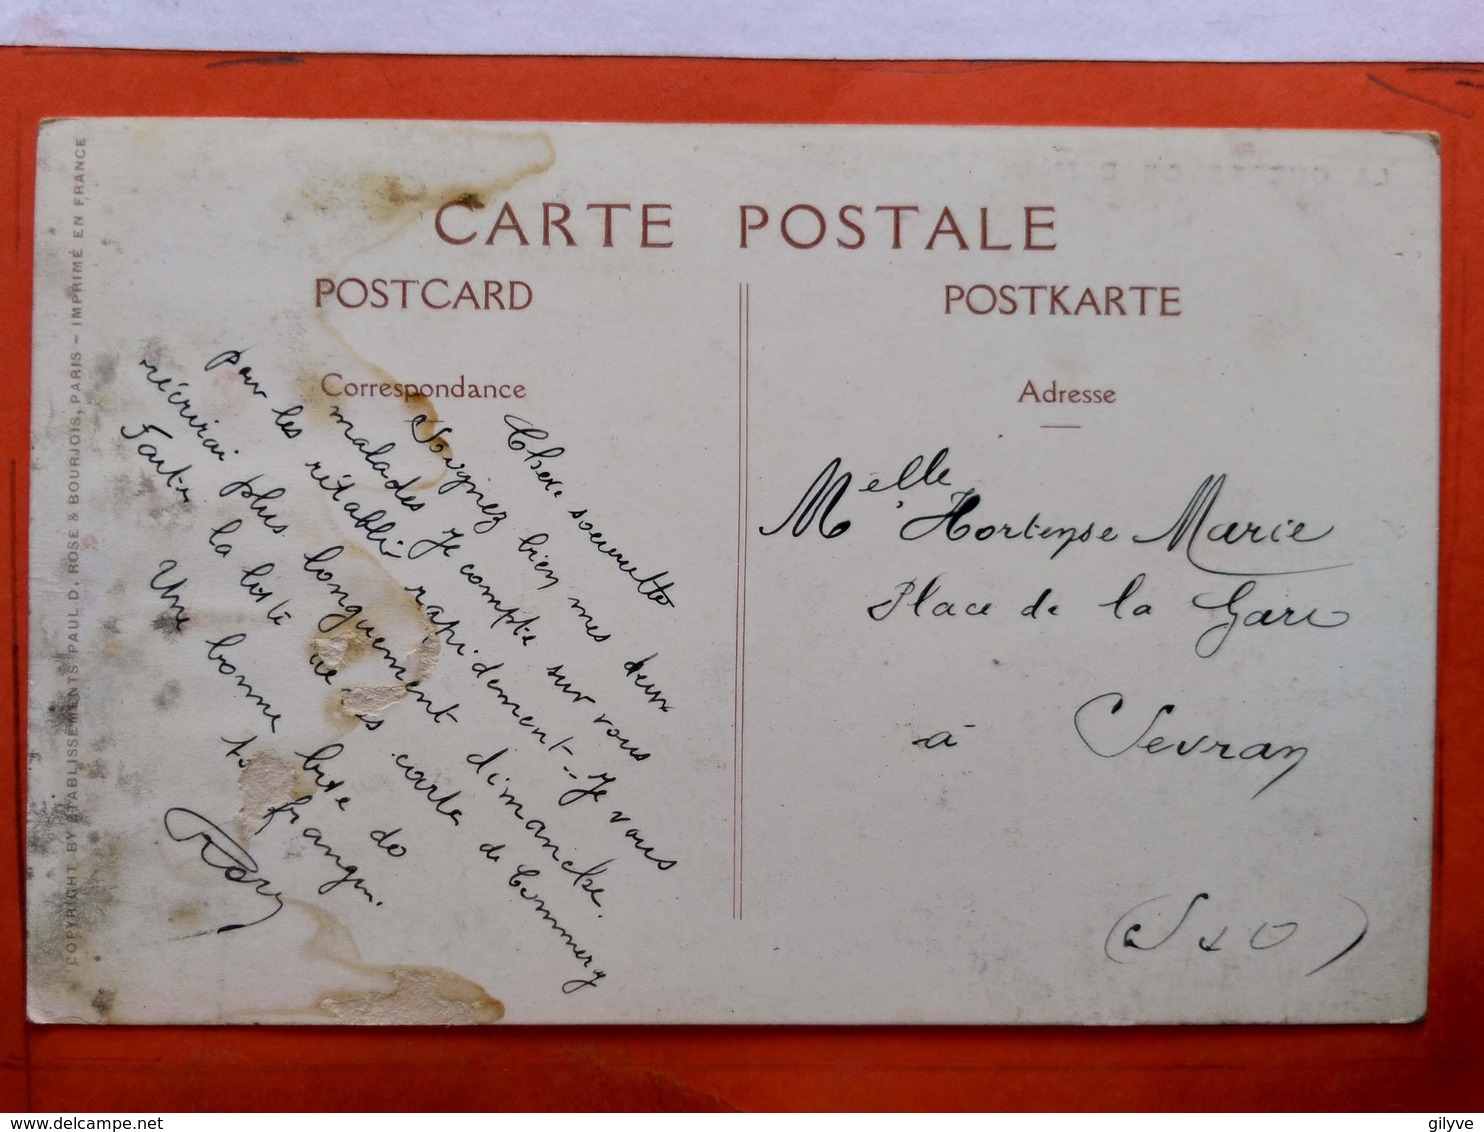 CARTE POSTALE
POSTCARD
POSTKARTE
Correspondance
Adresse
Chère soeurette
Soignez bien mes deux
malades Je compte sur vous
pour les rétablir rapidement - Je vous
récrirai plus longuement dimanche.
la carte de Commercy
Une bonne bise do
frangin.
Melle Hortense Marie
Place de la Gare
à Sevran
(S & O)
COPYRIGHT BY ETABLISSEMENTS PAUL D. ROSE & BOURJOIS, PARIS - IMPRIMÉ EN FRANCE
gilyve